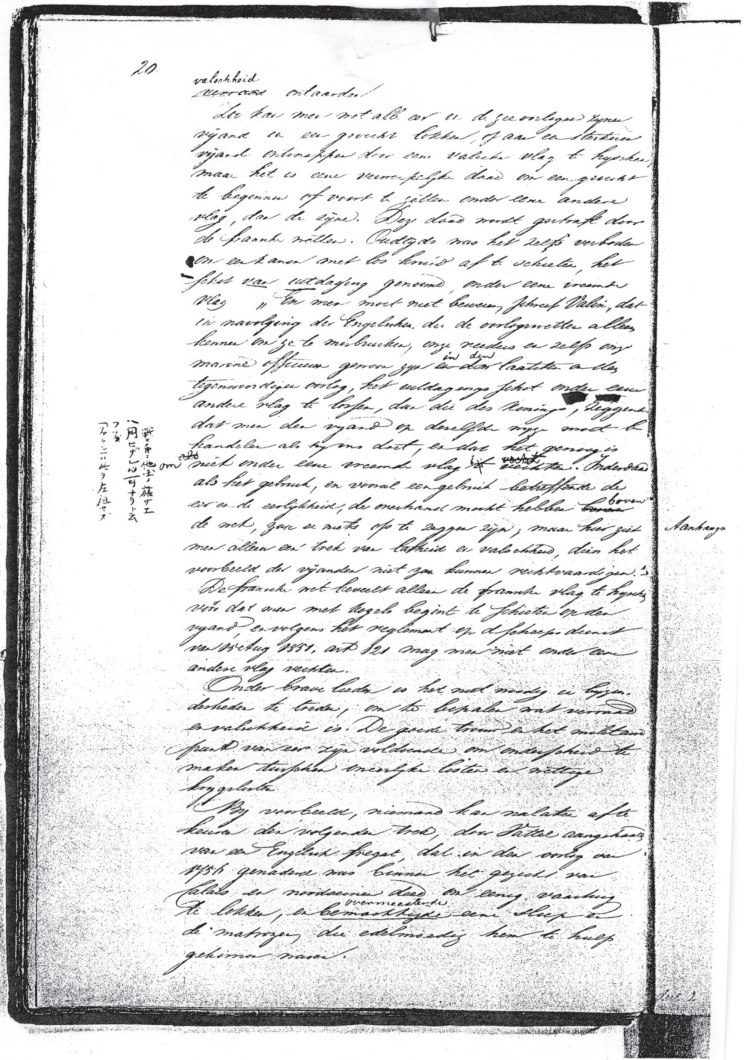 20.
valschheid
verraad ontaarden
Zoo kan men met alle eer in de zeeoorlogen zijnen
vijand in een gevecht lokken, of aan een sterkeren
vijand ontsnappen door eene valsche vlag te hyschen,
maar het is eene verwerpelijke daad om een gevecht
te beginnen of voort te zetten onder eene andere
vlag, dan de zijne. Deze daad wordt gestraft door
de fransche wetten. Oudtyds was het zelfs verboden
om een kanon met los kruid af te schieten, het
schot van uitdaging genoemd, onder eene vreemde
vlag „En men moet niet beweren, schreef Valin, dat
in navolging der Engelschen, die de oorlogswetten alleen
kennen om ze te misbruiken, onze reeders en zelfs onze
marine officieren gewoon zyn in den laatsten
tegenwoordigen oorlog, het uitdagings schot onder eene
andere vlag te lossen, dan die des Konings, zeggende
dat men den vyand op dezelfde wyze moet be
handelen als hy ons doet, en dat het genoeg is
om niet onder eene vreemde vlag te vechten. Inderdaad
als het gebruik, en vooral een gebruik betreffende de
eer en de eerlijkheid, de overhand mocht hebben boven
de wet, zou er niets op te zeggen zijn; maar hier ziet
men alleen een trek van lafheid en valschheid, dien het
voorbeeld der vijanden niet zou kunnen rechtvaardigen."
De fransche wet beveelt alleen de fransche vlag te hyschen
vóór dat men met kogels begint te schieten op den
vyand, en volgens het reglement op d' scheepsdienst
van 15 Aug 1851. art 121 mag men niet onder eene
andere vlag vechten.
Onder brave lieden is het niet noodig in byzon
derheden te treden, om te bepalen wat verraad
en valschheid is. De goede trouw en het
punt van eer zijn voldoende om onderscheid te
maken tusschen oneerlijke listen en wettige
krygslisten
By voorbeeld, niemand kan nalaten af te
keuren den volgenden trek, door Vattel aangehaald
van een Engelsch fregat, dat in den oorlog van
1756 genaderd was binnen het gezicht van
Calais en noodseinen deed om eenig vaartuig
te lokken, en overmeesterde bemachtigde eene sloep en
de matrozen, die edelmoedig hem te hulp
gekomen waren.
Aanhangs